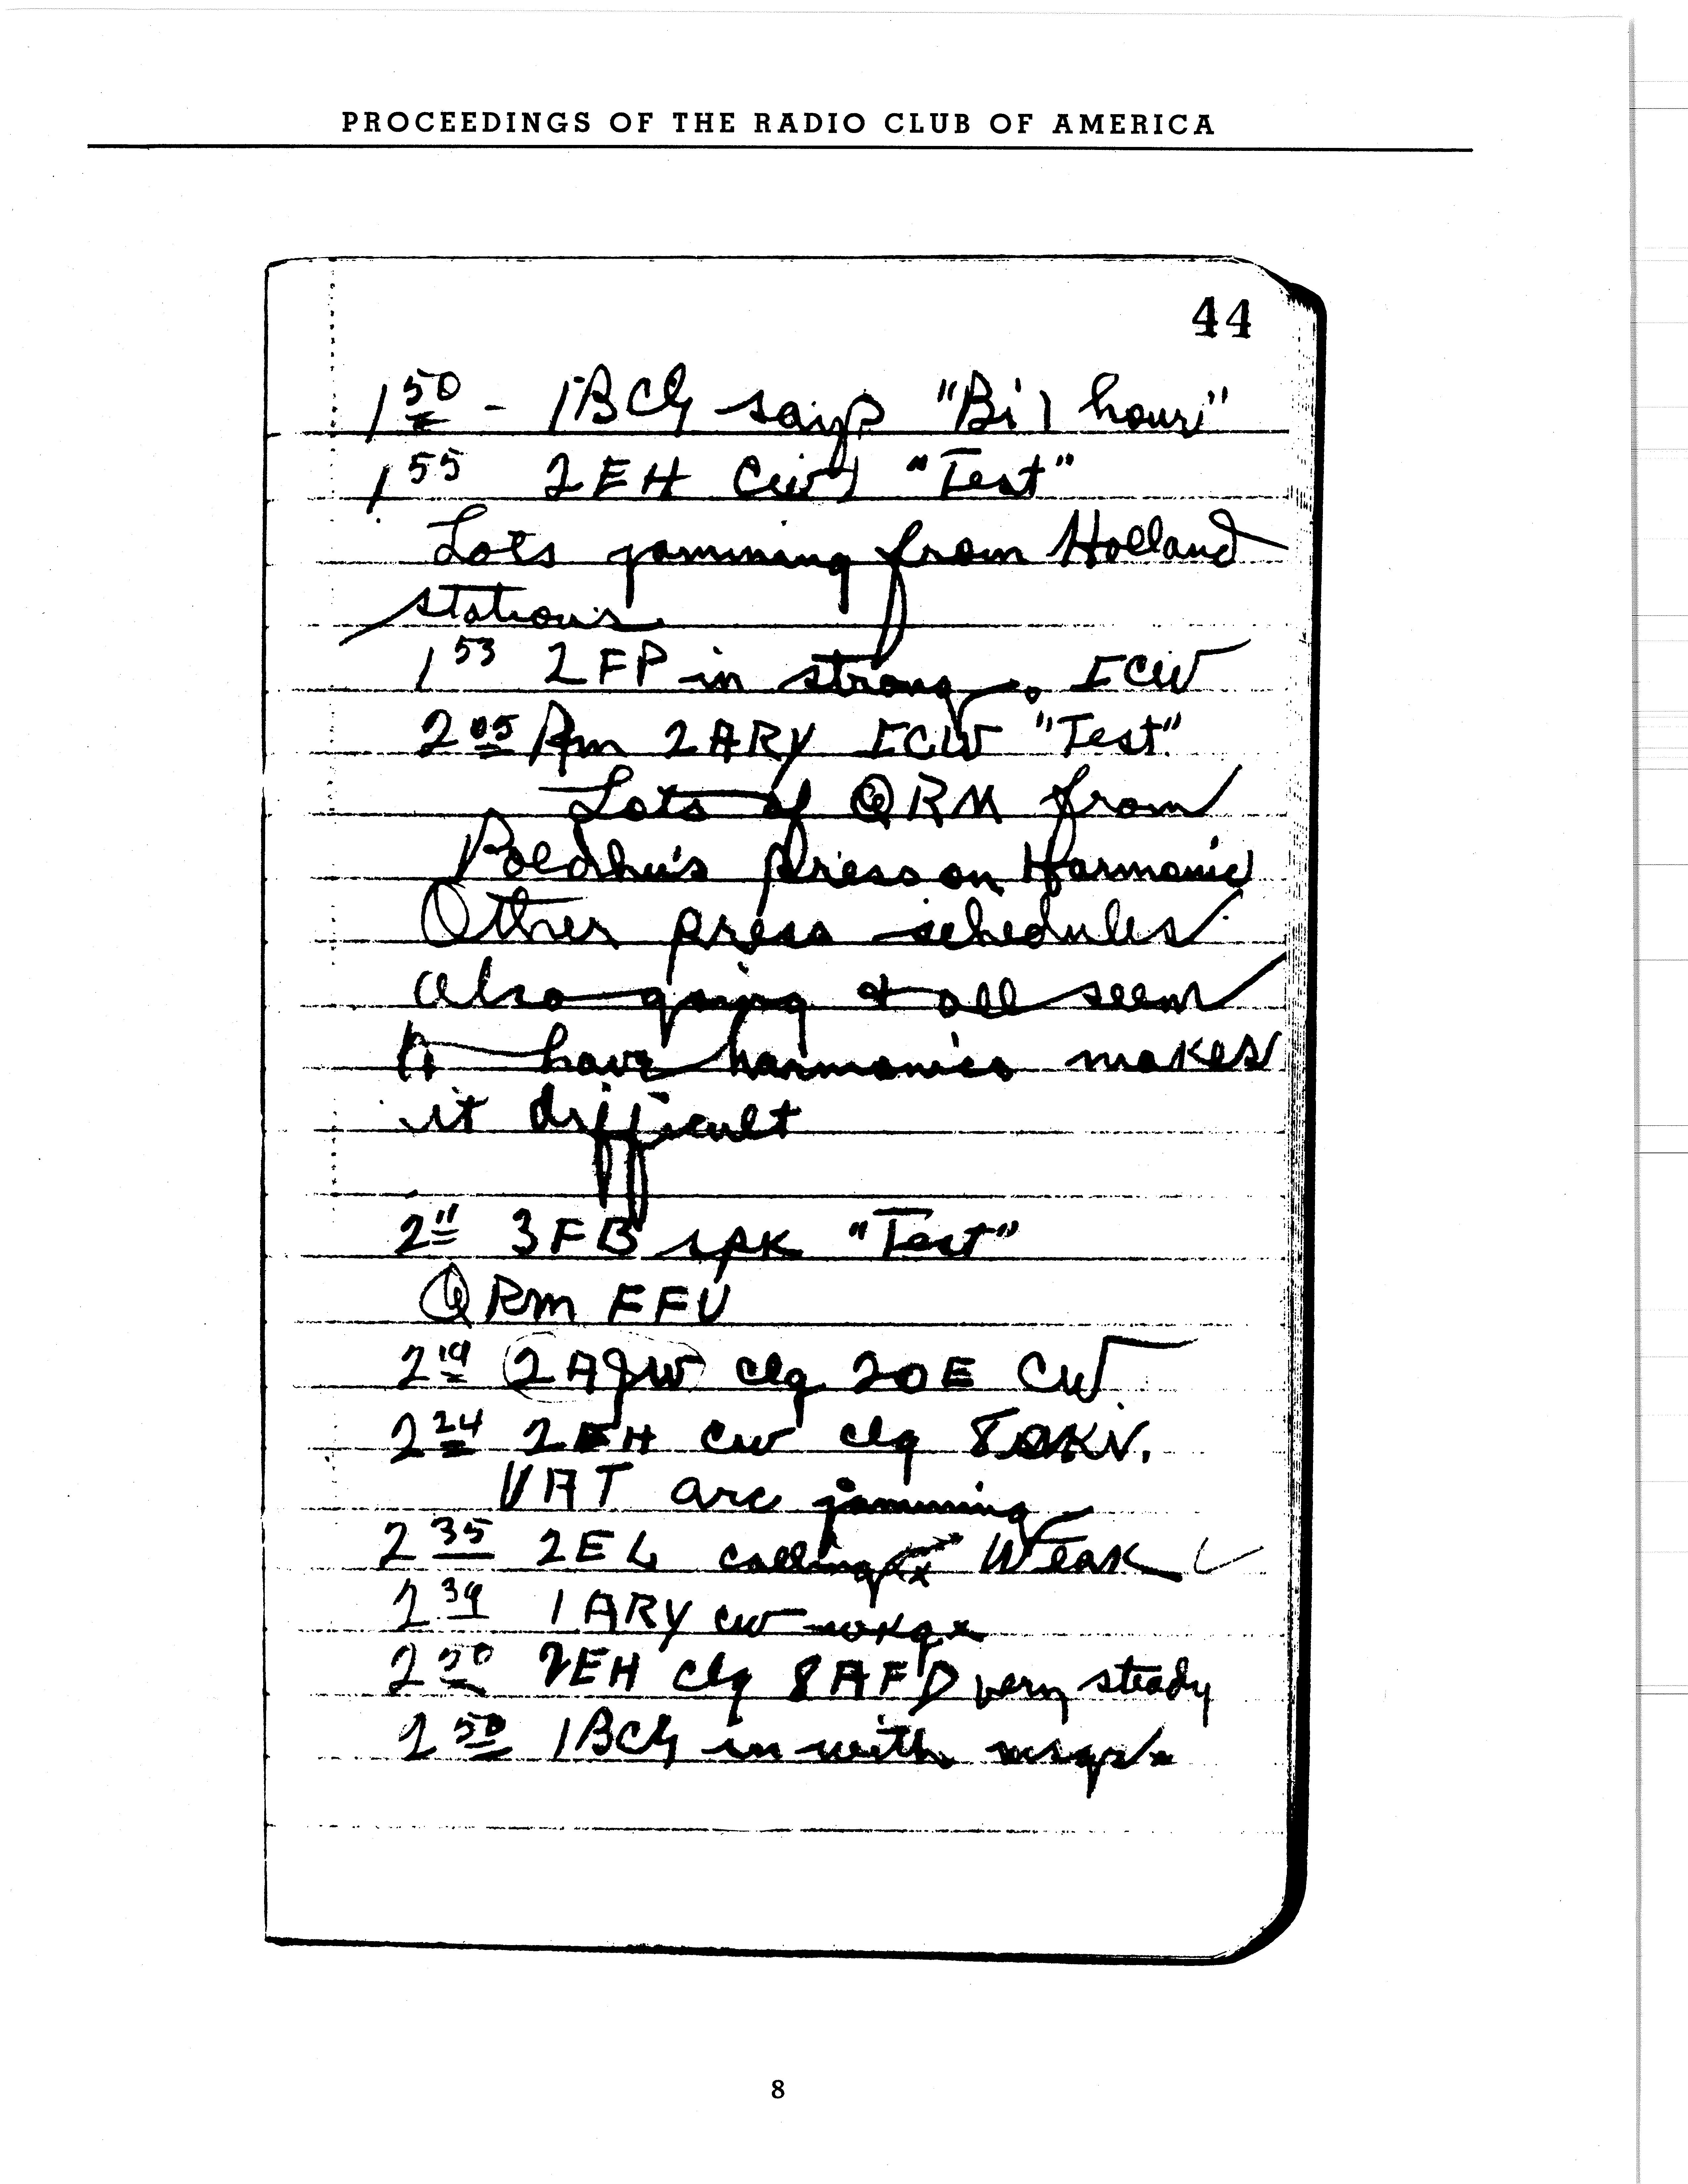 PROCEEDINGS OF THE RADIO CLUB OF AMERICA
44
1 50 - 1BCG says "Bi 1 hour"
1 55 2EH CW "Test"
Lots jamming from Holland
stations
1 53 2FP in strong. ICW
2 05 Am 2ARY ICW "Test"
Lots of QRM from
Poldhu's press on Harmonic
Other press schedules
also going & all seem
to have harmonics makes
it difficult
2 11 3FB spk "Test"
QRM FFU
2 19 2AJW clg 2OE CW
2 24 2EH CW clg
VAT arc jamming
2 35 2EL calling Weak
2 39 1ARY CW wkg
2 50 2EH clg 8AFD very steady
2 50 1BCG in with msgs
8